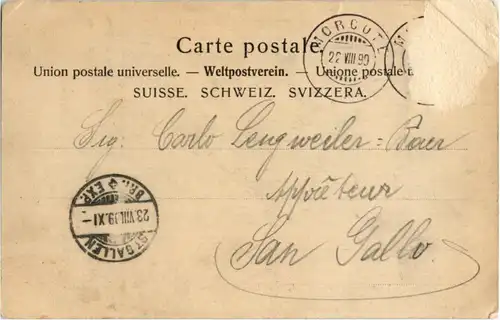 Carte postale
Union postale universelle. — Weltpostverein. — Unione postale
SUISSE. SCHWEIZ. SVIZZERA.
MORCOTE
22 VIII 99
M
Sig. Carlo Lengweiler-Baer
Appréteur
San Gallo.
ST GALLEN
23.VIII.99.XI-
BRF. EXP.